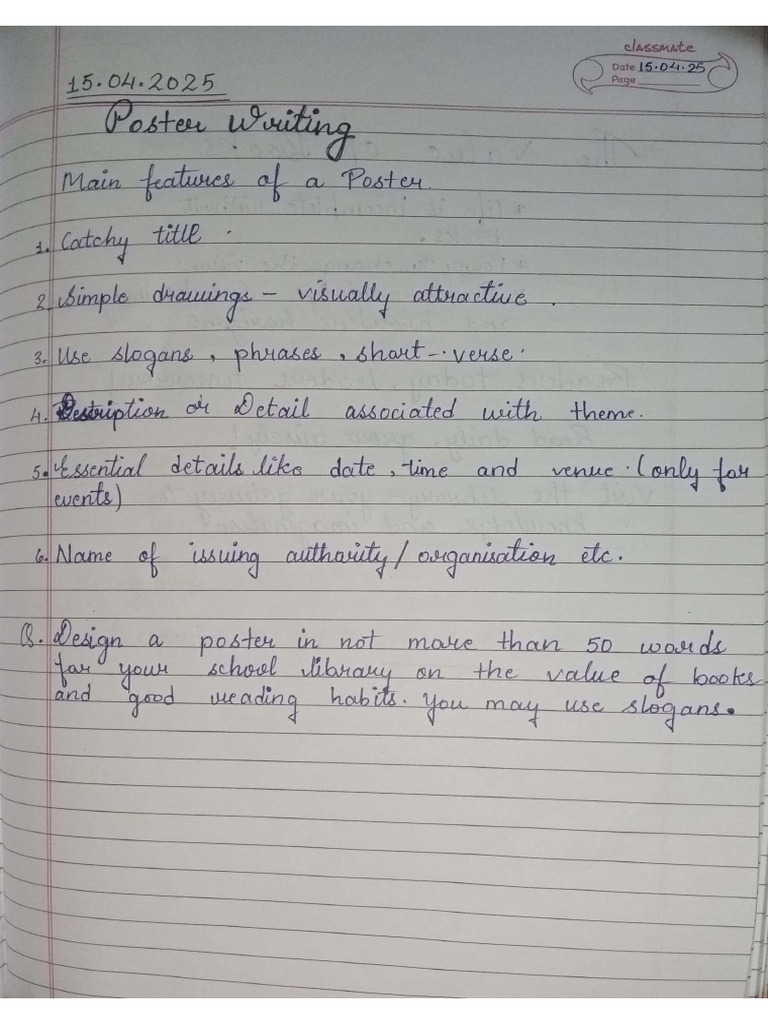 classmate
Date 15.04.25
Page
15.04.2025
Poster Writing
Main features of a Poster.
1. Catchy title.
2. Simple drawings - visually attractive.
3. Use slogans, phrases, short-verse.
4. Description or Detail associated with theme.
5. Essential details like date, time and venue. (only for
events)
6. Name of issuing authority/organisation etc.
Q. Design a poster in not more than 50 words
for your school library on the value of books
and good reading habits. You may use slogans.